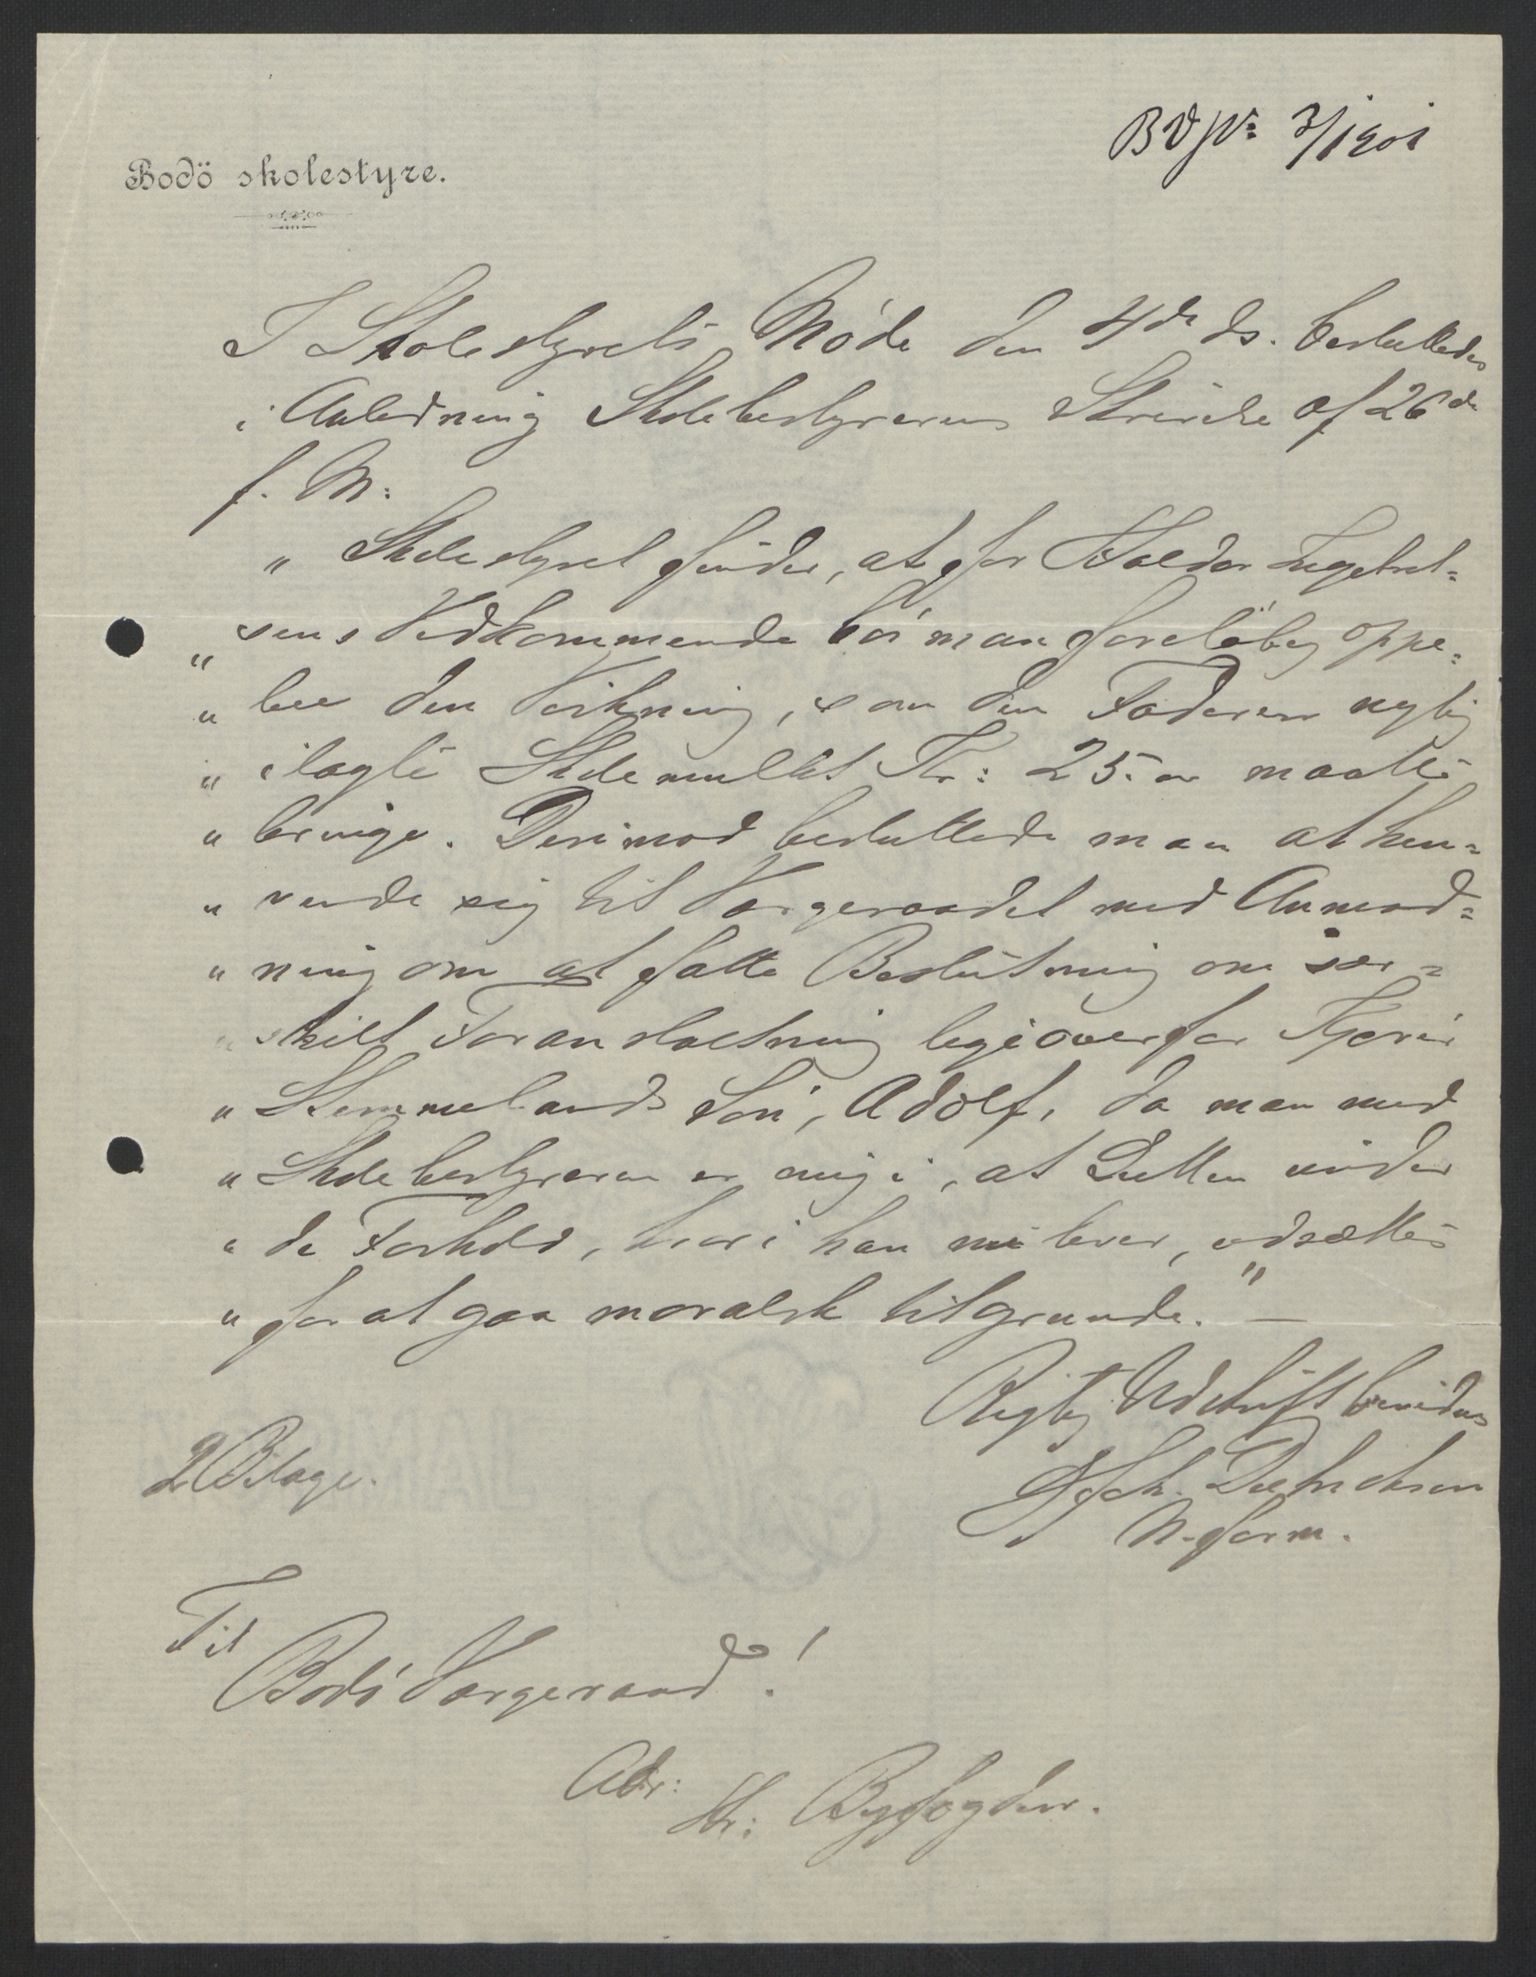 BVJN: 3/1901
Bodö skolestyre.
I Skolestyrets Møde den 4de ds. besluttedes
i Anledning Skolebestyrerens Skrivelse af 26de
f. M:
" Skolestyret finder, at for Haldor Ingebret=
" sens Vedkommende bör man foreløbig oppe=
" bie den Virkning, som den Faderen nylig
" ilagte Skolemulkt Kr: 25.00 maatte
" bringe. Derimod besluttede man at hen=
" vende sig til Værgeraadet med Anmod=
" ning om at fatte Beslutning om sær=
" skilt Foranstaltning ligeoverfor
" Stemmelands Søn, Adolf, da man med
" Skolebestyreren er enig i, at Denne under
" de Forhold, hvori han nu lever, udsættes
" for at gaa moralsk tilgrunde." —
Rigtig Udskrift bevidnes
N-form.
2 Bilage.
Til
Bodö Værgeraad!
Adr:
Hr: Byfogden.